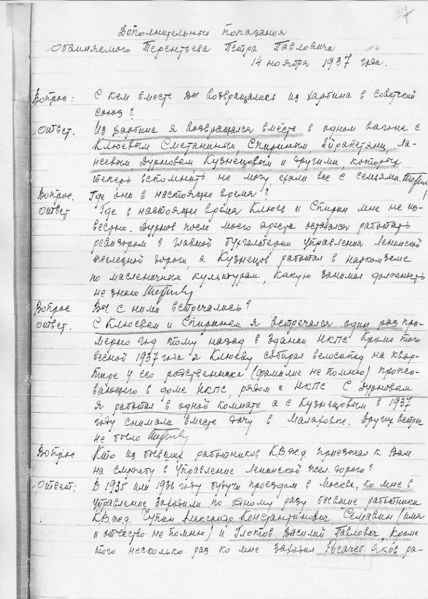 Дополнительные показания
обвиняемого Терентьева Петра Павловича
14 ноября 1937 года.
Вопрос: С кем вместе Вы возвращались из Харбина в Советский
союз?
Ответ. Из Харбина я возвращался вместе в одном вагоне с
Клюевым Сметаниным Спириным,
Дурновым Кузнецовым и другими которых
теперь вспомнить не могу ехали все с семьями.
Вопрос. Где они в настоящее время?
Ответ Где в настоящее время Клюев и Спирин мне не из-
вестно. Дурнов после моего ареста оставался работать
ревизором в Главной Бухгалтерии Управления Ленинской
железной дороги а Кузнецов работал в наркомземе
по масленичным культурам, какую занимал должность
не знаю
Вопрос Вы с ними встречались?
Ответ. С Клюевым и Спириным я встречался один раз при-
мерно год тому назад в здании НКПС Кроме того
весной 1937 года я Клюеву собирал велосипед на квар-
тире у его родственника (фамилию не помню) прожи-
вающего в доме НКПС, рядом с НКПС С Дурновым
я работал в одной комнате а с Кузнецовым в 1937
году снимали вместе дачу в Малаховке. Других встреч
не было
Вопрос Кто из бывших работников К.В.ж.д приезжал к Вам
на службу в Управление Ленинской жел. дороги?
Ответ: В 1935 или 1936 году будучи проездом в Москве, ко мне в
управление заходили по одному разу бывшие работники
К.В.жд Чупин Александр Константинович (имя
и отчество не помню) и Василий Павлович, Кроме
того несколько раз ко мне заходил Рогачев Яков ра-